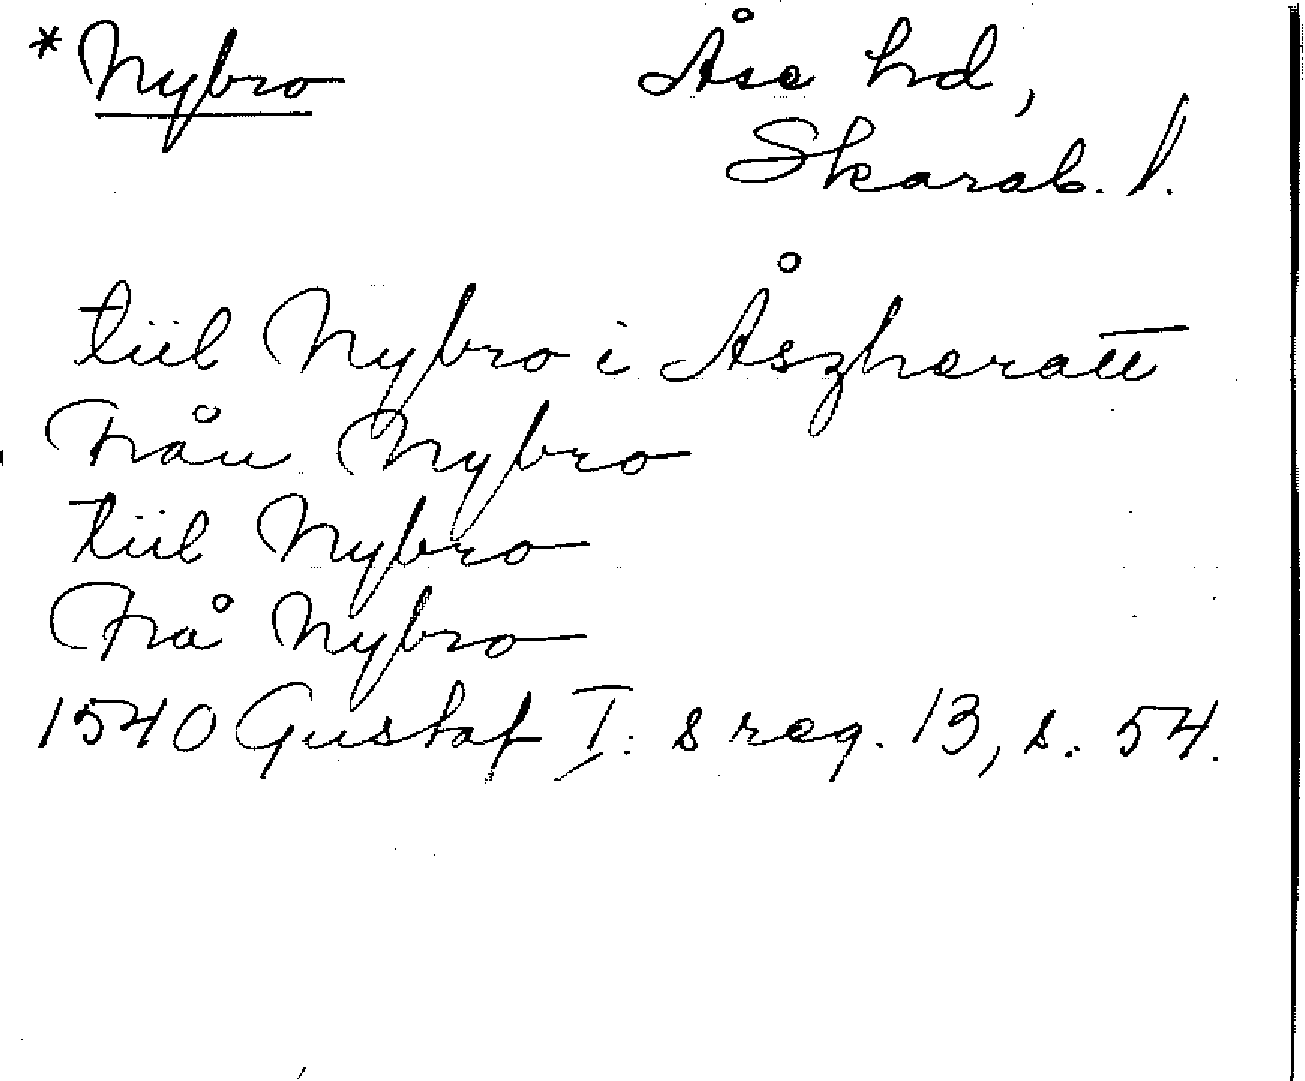 *Nybro Åse hd,
Skarab. l.
tiil Nybro i Åszheratt
Från Nybro
tiil Nybro
Frå Nybro
1540 Gustaf I:s reg. 13, s. 54.